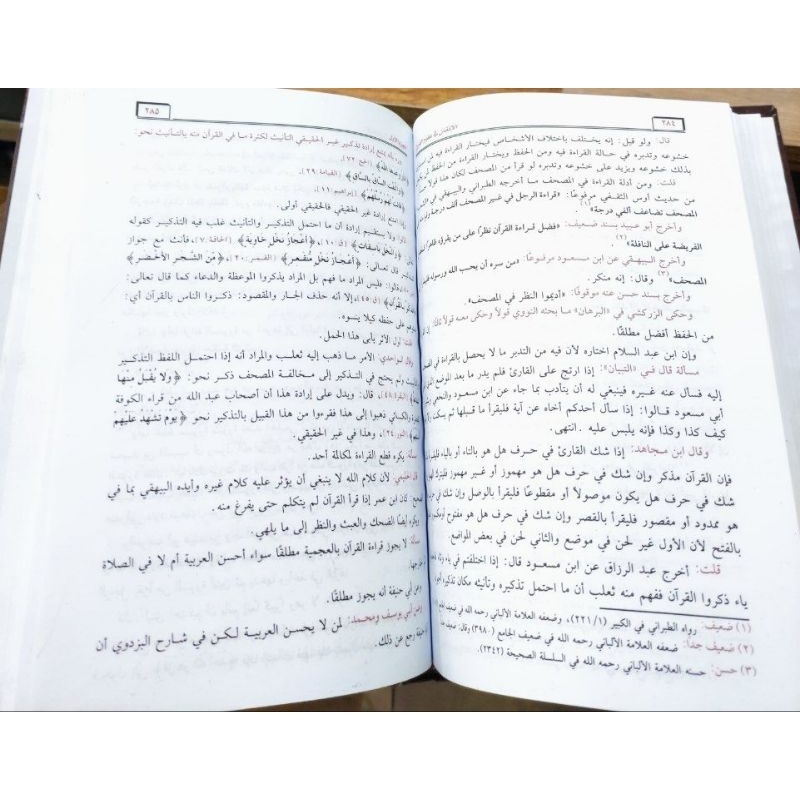 ٢٨٤
قال: ولو قيل: إنه يختلف باختلاف الأشخاص فيختار القراءة فيه لمن
خشوعه وتدبره في حالة القراءة فيه ومن الحفظ ويختار القراءة من الحفظ لمن
بذلك خشوعه ويزيد على خشوعه وتدبره لو قرأ من المصحف لكان هذا قولاً
قلت: ومن أدلة القراءة في المصحف ما أخرجه الطبراني والبيهقي في
من حديث أوس الثقفي مرفوعًا: «قراءة الرجل في غير المصحف ألف درجة
المصحف تضاعف ألفي درجة»(١).
وأخرج أبو عبيد بسند ضعيف: «فضل قراءة القرآن نظرًا على من يقرؤه ظاهرًا
الفريضة على النافلة»(٢).
وأخرج البيهقي عن ابن مسعود مرفوعًا: «من سره أن يحب الله ورسوله
المصحف»(٣) وقال: إنه منكر.
وأخرج بسند حسن عنه موقوفًا: «أديموا النظر في المصحف».
وحكى الزركشي في «البرهان» ما بحثه النووي قولاً وحكى معه قولاً
من الحفظ أفضل مطلقًا.
وإن ابن عبد السلام اختاره لأن فيه من التدبر ما لا يحصل بالقراءة في
مسألة قال في «التبيان»: إذا ارتج على القارئ فلم يدر ما بعد الموضع الذي
إليه فسأل عنه غيره فينبغي له أن يتأدب بما جاء عن ابن مسعود والنخعي
أبي مسعود قالوا: إذا سأل أحدكم أخاه عن آية فليقرأ ما قبلها ثم يسكت
كيف كذا وكذا فإنه يلبس عليه. انتهى.
وقال ابن مجاهد: إذا شك القارئ في حرف هل هو بالتاء أو بالياء
فإن القرآن مذكر وإن شك في حرف هل هو مهموز أو غير مهموز فليترك
شك في حرف هل يكون موصولاً أو مقطوعًا فليقرأ بالوصل وإن شك في حرف
هو ممدود أو مقصور فليقرأ بالقصر وإن شك في حرف هل هو مفتوح أو
بالفتح لأن الأول غير لحن في موضع والثاني لحن في بعض المواضع.
قلت: أخرج عبد الرزاق عن ابن مسعود قال: إذا اختلفتم في ياء وتاء
ياء ذكروا القرآن ففهم منه ثعلب أن ما احتمل تذكيره وتأنيثه مكان تذكيره
(١) ضعيف: رواه الطبراني في الكبير (٢٢١/١)، وضعفه العلامة الألباني رحمه الله في ضعيف
(٢) ضعيف جدًا: ضعفه العلامة الألباني رحمه الله في ضعيف الجامع (٣٩٨٠)
(٣) حسن: حسنه العلامة الألباني رحمه الله في السلسلة الصحيحة (٢٣٤٢).
٢٨٥
إرادة تذكير غير الحقيقي التأنيث لكثرة ما في القرآن منه بالتأنيث نحو:
[الحج: ٧٢]،
﴿والتفت الساق بالساق﴾ [القيامة: ٢٩]،
﴿قالت لهم رسلهم﴾ [إبراهيم: ١١].
إرادة غير الحقيقي فالحقيقي أولى.
قالوا: ولا يستقيم إرادة أن ما احتمل التذكير والتأنيث غلب فيه التذكير كقوله
﴿والنخل باسقات﴾ [ق: ١٠]، ﴿أعجاز نخل خاوية﴾ [الحاقة: ٧]، فأنث مع جواز
قال تعالى: ﴿أعجاز نخل منقعر﴾ [القمر: ٢٠]، ﴿من الشجر الأخضر﴾
قالوا: فليس المراد ما فهم بل المراد يذكروا الموعظة والدعاء كما قال تعالى:
بالقرآن﴾ [ق: ٤٥]، إلا أنه حذف الجار والمقصود: ذكروا الناس بالقرآن أي:
على حفظه كيلا ينسوه.
قلت: أول الأثر يأبى هذا الحمل.
وقال الواحدي: الأمر ما ذهب إليه ثعلب والمراد أنه إذا احتمل اللفظ التذكير
والتأنيث ولم يحتج في التذكير إلى مخالفة المصحف ذكر نحو: ﴿ولا يقبل منها
[البقرة: ٤٨]، قال: ويدل على إرادة هذا أن أصحاب عبد الله من قراء الكوفة
والكسائي ذهبوا إلى هذا فقرءوا من هذا القبيل بالتذكير نحو ﴿يوم تشهد عليهم
[النور: ٢٤]، وهذا في غير الحقيقي.
مسألة: يكره قطع القراءة لمكالمة أحد.
قال الحليمي: لأن كلام الله لا ينبغي أن يؤثر عليه كلام غيره وأيده البيهقي بما في
كان ابن عمر إذا قرأ القرآن لم يتكلم حتى يفرغ منه.
ويكره أيضًا الضحك والعبث والنظر إلى ما يلهي.
مسألة: لا يجوز قراءة القرآن بالعجمية مطلقًا سواء أحسن العربية أم لا في الصلاة
خارجها.
وعن أبي حنيفة أنه يجوز مطلقًا.
وعن أبي يوسف ومحمد: لمن لا يحسن العربية لكن في شارح البزدوي أن
حنيفة رجع عن ذلك.